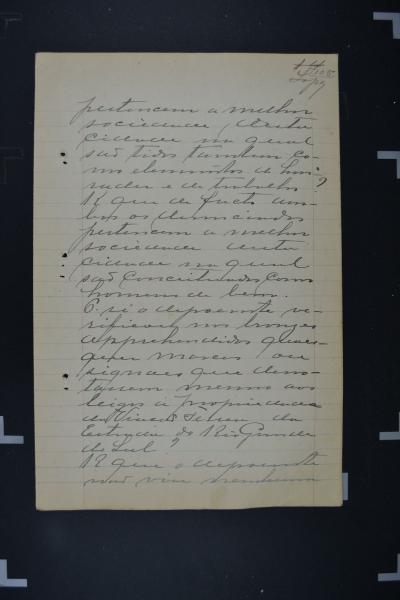 pertencem a melhor
sociedade desta
cidade na qual
são tidos tambem co-
mo elementos de hon-
radez e de trabalho?
R que de facto am-
bos os denunciados
pertencem a melhor
sociedade desta
cidade na qual
são conceituados como
homens de bem.
P. si o depoente ve-
rificou nos bronzes
apprehendidos quaes-
quer marcas ou
signaes que deno-
tassem mesmo aos
leigos a propriedade
da Viação Ferrea do
Estado do Rio Grande
do Sul?
R que o depoente
não viu nenhuma